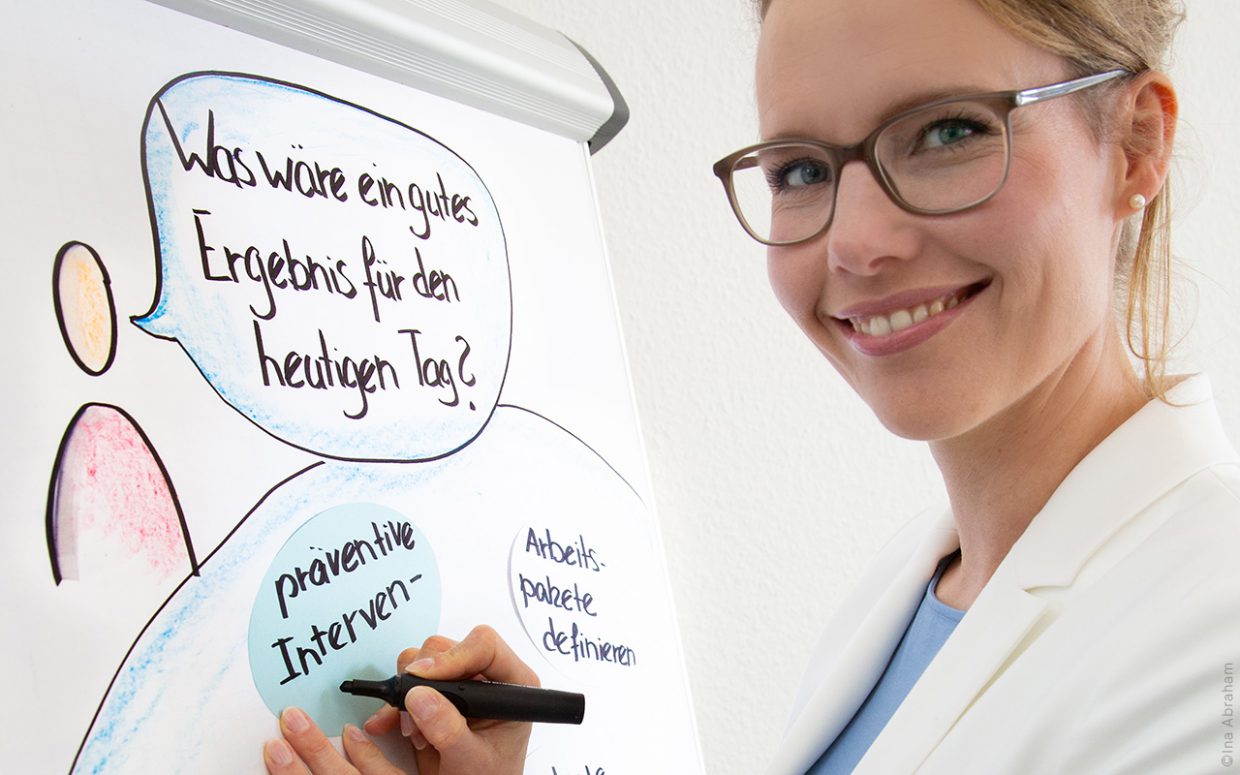 Was wäre ein gutes
Ergebnis für den
heutigen Tag?
präventive
Interven-
Arbeits-
pakete
definieren
©Ina Abraham